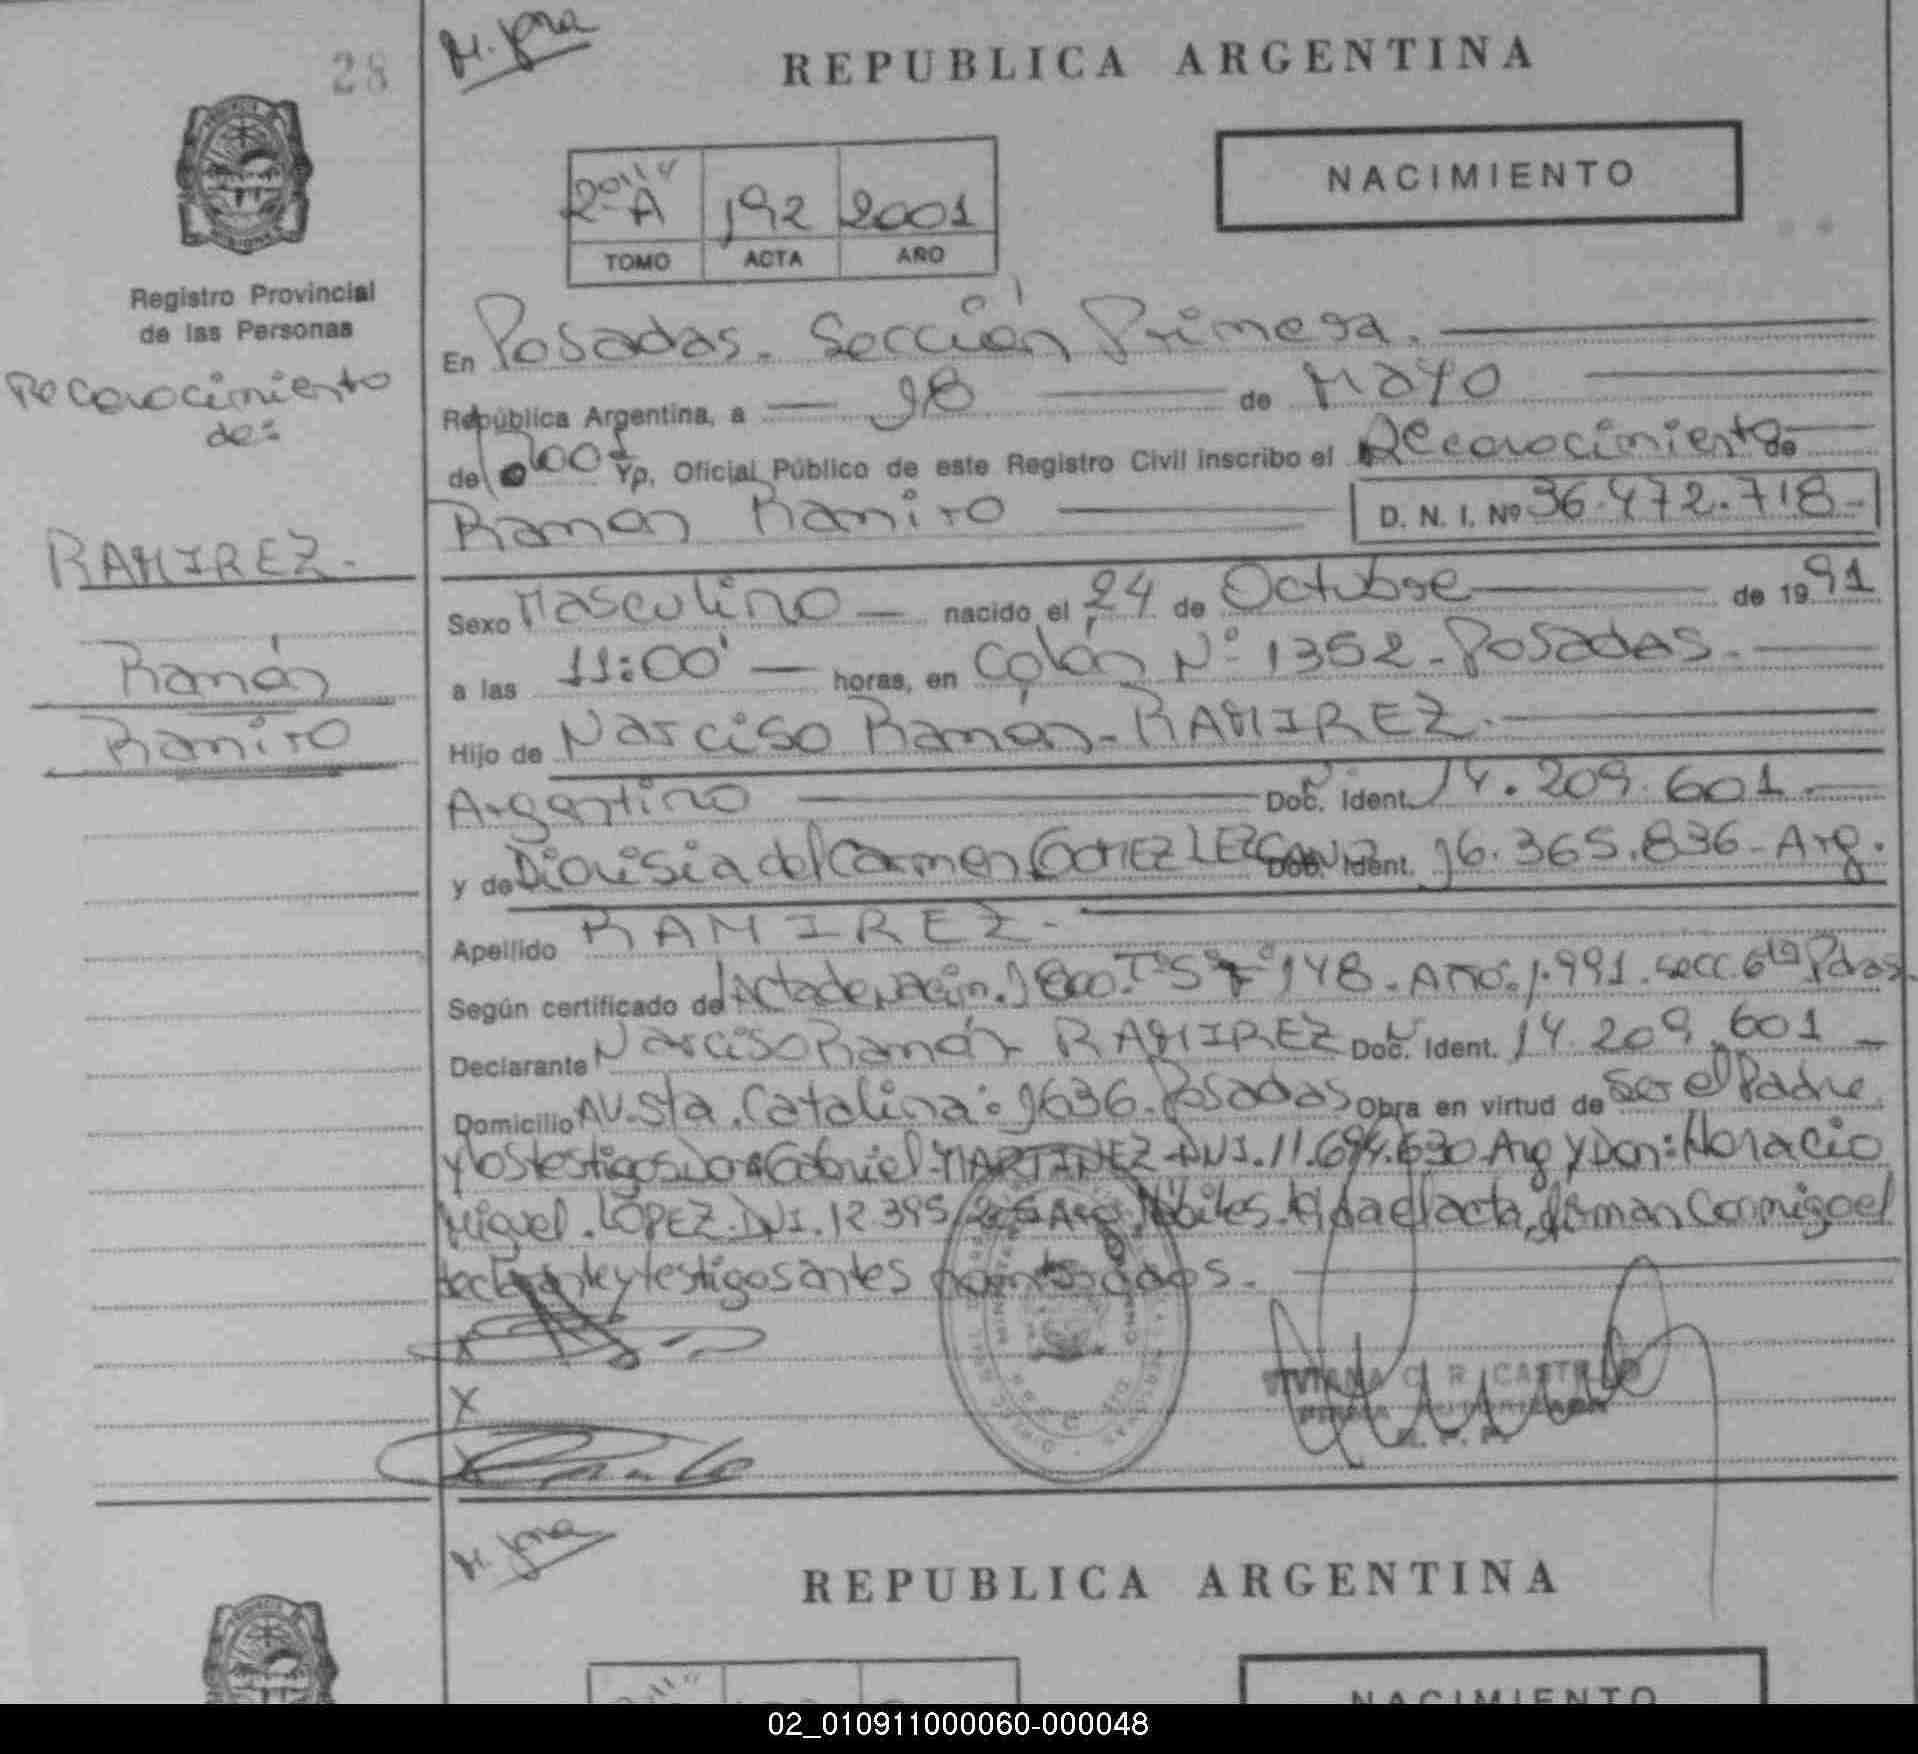 28
M. Jra
REPUBLICA ARGENTINA
NACIMIENTO
2º A 192 2001
TOMO ACTA AÑO
Registro Provincial
de las Personas
Reconocimiento
de:
RAMIREZ.
Ramón
Ramiro
En Posadas. Sección Primera.
República Argentina, a 18 de MAYO
de 2001 Yo, Oficial Público de este Registro Civil inscribo el Reconocimiento de
Ramón Ramiro D. N. I. Nº 36.472.718-
Sexo Masculino nacido el 24 de Octubre de 1991
a las 11:00' horas, en Colón Nº 1352 - Posadas.
Hijo de Narciso Ramón - RAMIREZ.
Argentino Doc. Ident. 14.209.601.
y de Dionisia del Carmen GOMEZ LEZCANO Doc. Ident. 16.365.836 - Arg.
Apellido RAMIREZ.
Según certificado de Acta de Nacim. 1800. Tº 5º Fº 148. Año: 1.991. Secc. 6ta Pdas.
Declarante Narciso Ramón RAMIREZ Doc. Ident. 14.209.601
Domicilio AV. Sta. Catalina: 1636. Posadas Obra en virtud de Ser el Padre
y los testigos Don: Gabriel MARTINEZ DNI. 11.694.630 Arg y Don: Horacio
Miguel. LOPEZ. DNI. 12.395. Arg. Hábiles. Leída el acta, firman Conmigo el
declarante y testigos antes nombrados.
X
X
X
VIVIANA C. R. CASTILLO
FIRMA AUTORIZADA
R. P. P.
M. Jra
REPUBLICA ARGENTINA
NACIMIENTO
02_010911000060-000048